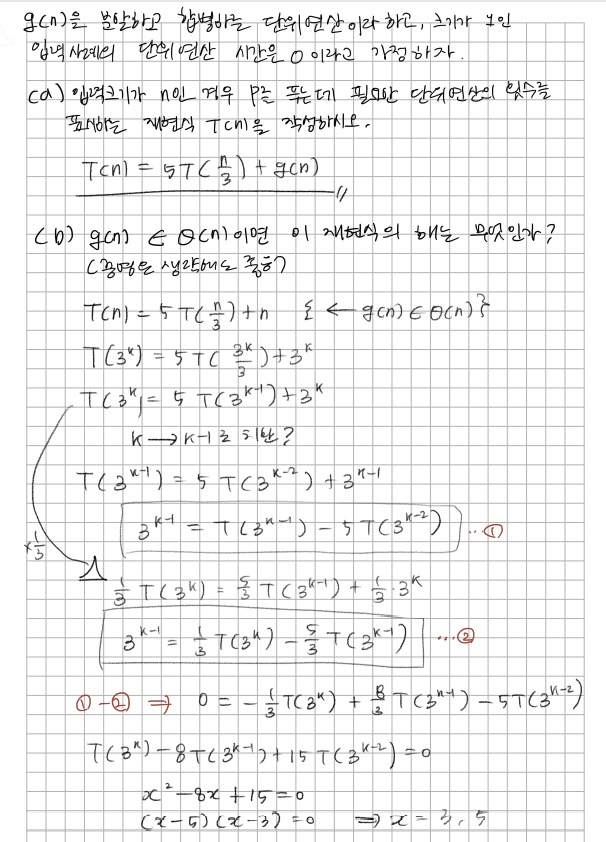 g(n)을 분할하고 합병하는 단위연산이라 하고, 크기가 1인
입력사례의 단위연산 시간은 0이라고 가정하자.
(a) 입력크기가 n인 경우 P를 푸는데 필요한 단위연산의 횟수를
표시하는 재현식 T(n)을 작성하시오.
T(n) = 5T(n/3) + g(n)
(b) g(n) ∈ Θ(n)이면 이 재현식의 해는 무엇인가?
(증명은 생략해도 좋음)
T(n) = 5T(n/3) + n { ← g(n) ∈ Θ(n) }
T(3^k) = 5T(3^k/3) + 3^k
T(3^k) = 5T(3^(k-1)) + 3^k
k → k-1로 치환?
T(3^(k-1)) = 5T(3^(k-2)) + 3^(k-1)
3^(k-1) = T(3^(k-1)) - 5T(3^(k-2)) ...①
×1/3
1/3 T(3^k) = 5/3 T(3^(k-1)) + 1/3·3^k
3^(k-1) = 1/3 T(3^k) - 5/3 T(3^(k-1)) ...②
①-② ⇒ 0 = -1/3 T(3^k) + 8/3 T(3^(k-1)) - 5T(3^(k-2))
T(3^k) - 8T(3^(k-1)) + 15T(3^(k-2)) = 0
x² - 8x + 15 = 0
(x-5)(x-3) = 0 ⇒ x = 3, 5